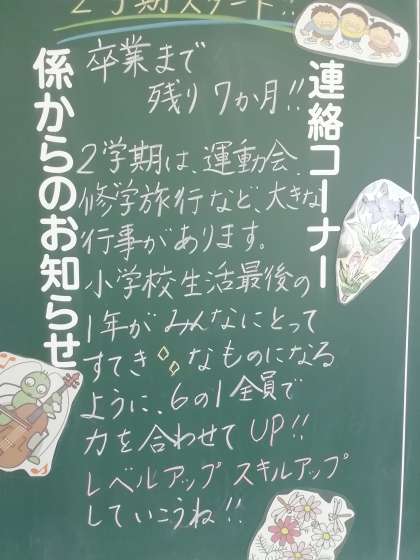 2学期スタート!!
連絡コーナー
卒業まで
残り 7か月!!
2学期は、運動会、
修学旅行など、大きな
行事があります。
小学校生活最後の
1年がみんなにとって
すてきなものになる
ように、6の1全員で
力を合わせてUP!!
レベルアップ スキルアップ
していこうね!!
係からのお知らせ